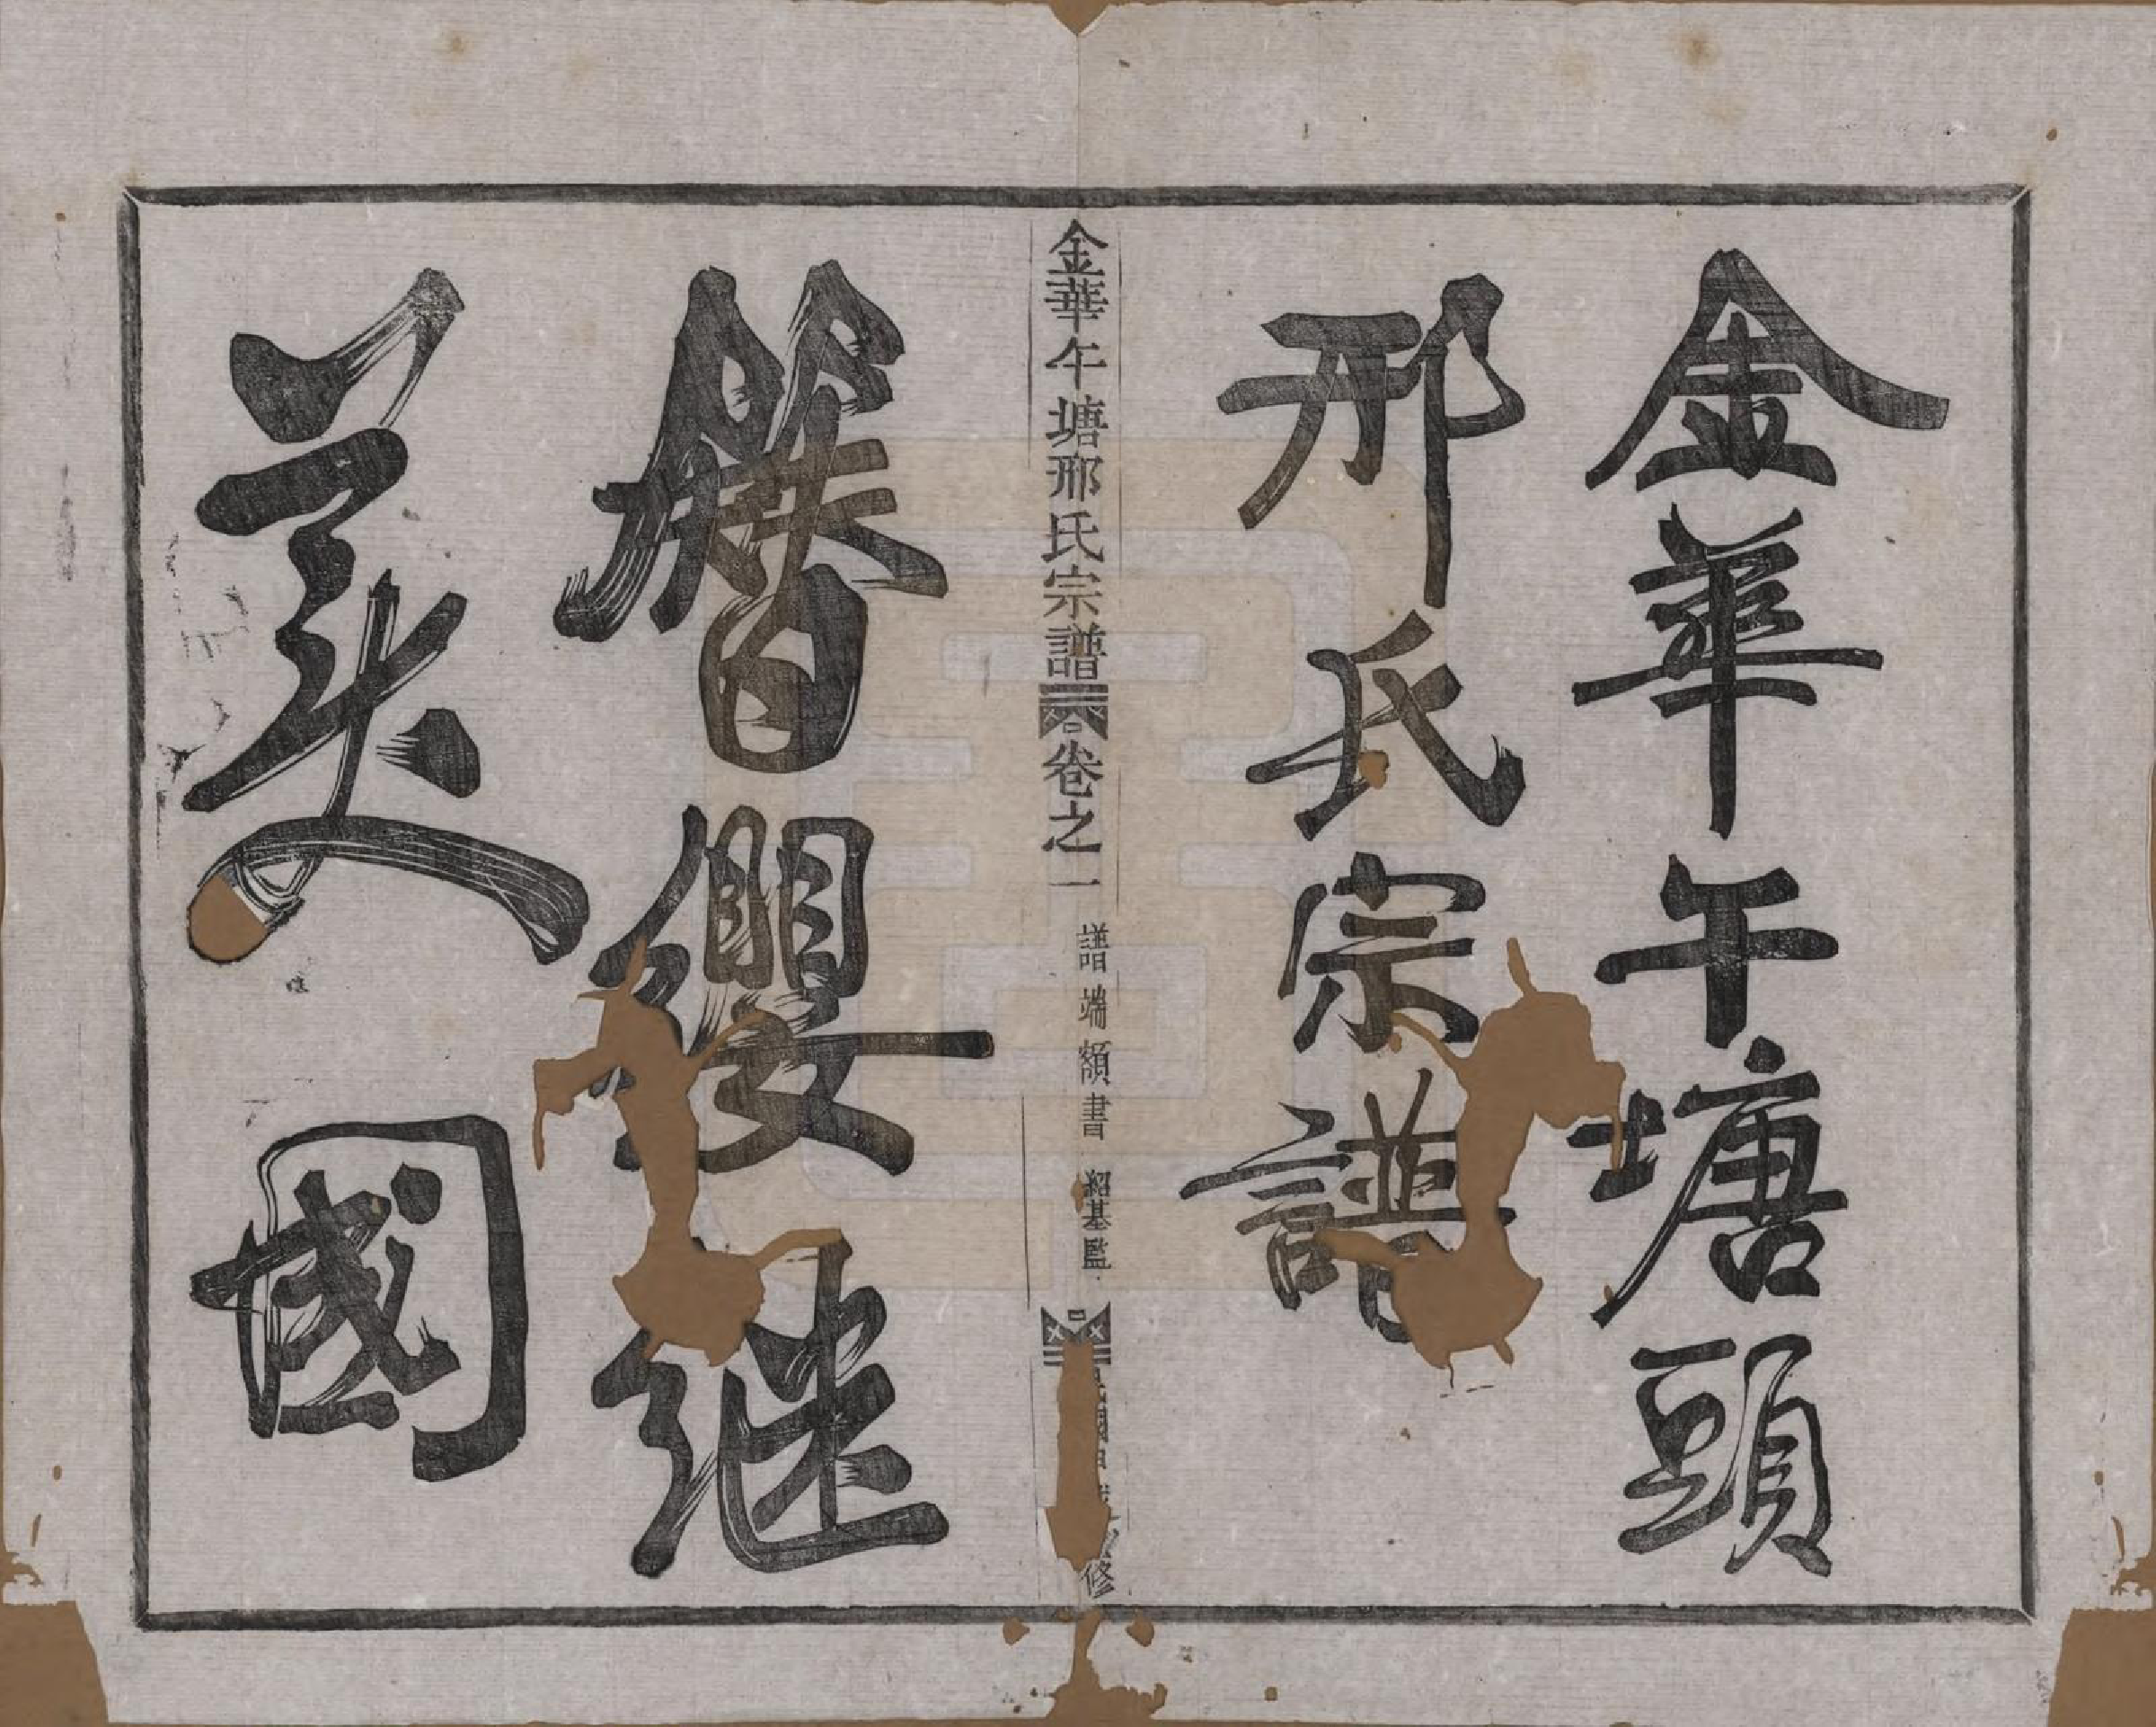 金華午塘頭
邢氏宗譜
金華午塘邢氏宗譜 卷之一 譜端額書 紹基監 民國 修
簪纓继
美國